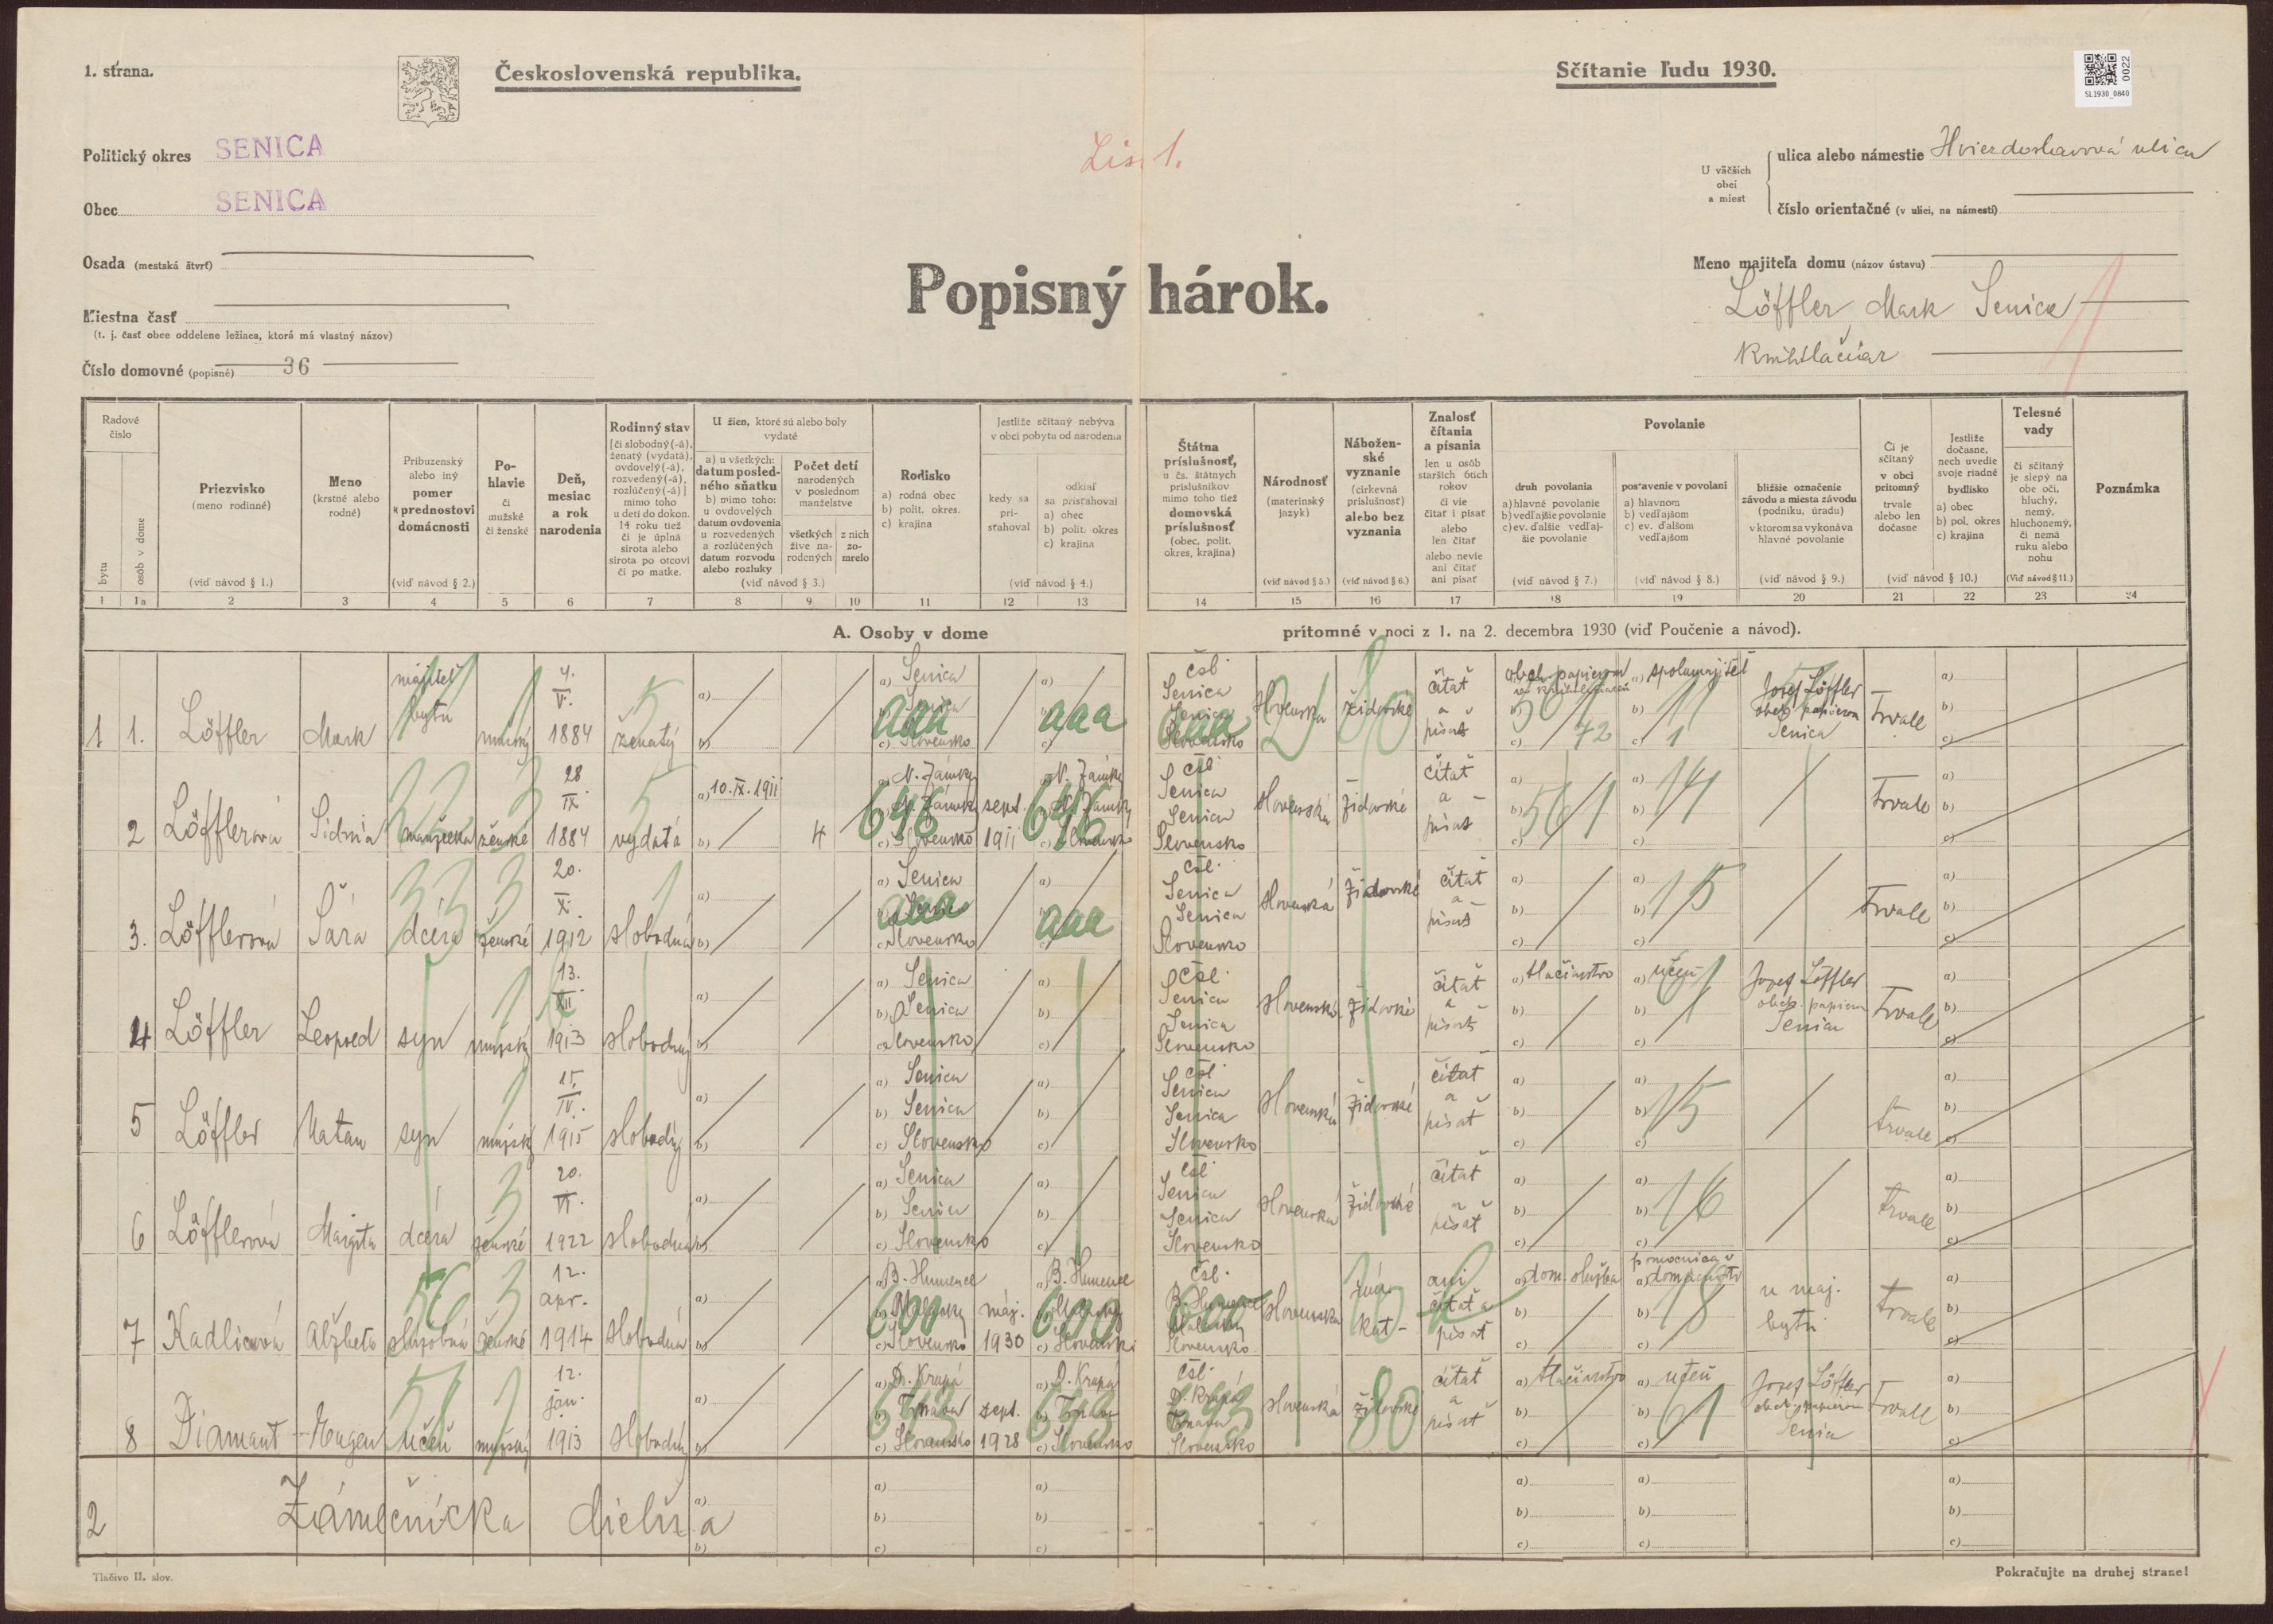 1. strana.
Československá republika.
Sčítanie ľudu 1930.
0022
SL1930_0840
Politický okres SENICA
Lis 1.
U väčších obcí a miest
ulica alebo námestie Hviezdoslavová ulica
Obec SENICA
číslo orientačné (v ulici, na námestí)
Osada (mestská štvrť)
Popisný hárok.
Meno majiteľa domu (názov ústavu)
Löffler Mark Senica
Kníhtlačiar
Miestna časť
(t. j. časť obce oddelene ležiaca, ktorá má vlastný názov)
Číslo domovné (popisné) 36
Radové číslo
bytu
osôb v dome
Priezvisko (meno rodinné) (viď návod § 1.)
Meno (krstné alebo rodné)
Príbuzenský alebo iný pomer k prednostovi domácnosti (viď návod § 2.)
Pohlavie či mužské či ženské
Deň, mesiac a rok narodenia
Rodinný stav [či slobodný(-á), ženatý (vydatá), ovdovelý(-á), rozvedený(-á), rozlúčený(-á)] mimo toho u detí do dokon. 14 roku tiež či je úplná sirota alebo sirota po otcovi či po matke.
U žien, ktoré sú alebo boly vydaté
a) u všetkých: datum posledného sňatku b) mimo toho: u ovdovelých datum ovdovenia u rozvedených a rozlúčených datum rozvodu alebo rozluky
Počet detí narodených v poslednom manželstve
všetkých žive narodených
z nich zomrelo
(viď návod § 3.)
Rodisko a) rodná obec b) polit. okres. c) krajina
Jestliže sčítaný nebýva v obci pobytu od narodenia
kedy sa prisťahoval
odkiaľ sa prisťahoval a) obec b) polit. okres c) krajina
(viď návod § 4.)
Štátna príslušnosť, u čs. štátnych príslušníkov mimo toho tiež domovská príslušnosť (obec, polit. okres, krajina)
Národnosť (materinský jazyk) (viď návod § 5.)
Náboženské vyznanie (cirkevná príslušnosť) alebo bez vyznania (viď návod § 6.)
Znalosť čítania a písania len u osôb starších 6tich rokov či vie čítať i písať alebo len čítať alebo nevie ani čítať ani písať
Povolanie
druh povolania a) hlavné povolanie b) vedľajšie povolanie c) ev. ďalšie vedľajšie povolanie (viď návod § 7.)
postavenie v povolaní a) hlavnom b) vedľajšom c) ev. ďalšom vedľajšom (viď návod § 8.)
bližšie označenie závodu a miesta závodu (podniku, úradu) v ktorom sa vykonáva hlavné povolanie (viď návod § 9.)
Či je sčítaný v obci prítomný trvale alebo len dočasne
Jestliže dočasne, nech uvedie svoje riadné bydlisko a) obec b) pol. okres c) krajina
(viď návod § 10.)
Telesné vady či sčítaný je slepý na obe oči, hluchý, nemý, hluchonemý, či nemá ruku alebo nohu (Viď návod § 11.)
Poznámka
1 1a 2 3 4 5 6 7 8 9 10 11 12 13 14 15 16 17 18 19 20 21 22 23 24
A. Osoby v dome prítomné v noci z 1. na 2. decembra 1930 (viď Poučenie a návod).
1 1. Löffler Mark majiteľ bytu mužský 4. V. 1884 ženatý Senica Slovensko čsl. Senica Senica Slovensko slovenská židovské čítať a písať spolumajiteľ Jozef Löffler obch. papierom Senica Trvale
2 Löfflerová Sidnia manželka ženské 28 IX. 1884 vydatá 10. IX. 1911 4 N. Zámky N. Zámky Slovensko sept. 1911 N. Zámky N. Zámky Slovensko čsl. Senica Senica Slovensko slovenská židovské čítať a písať Trvale
3. Löfflerová Šára dcéra ženské 20. X. 1912 slobodná Senica Senica Slovensko čsl. Senica Senica Slovensko slovenská židovské čítať a písať Trvale
4 Löffler Leopold syn mužský 13. XII 1913 slobodný Senica Senica Slovensko čsl. Senica Senica Slovensko slovenská židovské čítať a písať tlačiarstvo učeň Jozef Löffler obch. papierom Senica Trvale
5 Löffler Natan syn mužský 15. IV. 1915 slobodný Senica Senica Slovensko čsl. Senica Senica Slovensko slovenská židovské čítať a písať trvale
6 Löfflerová Margita dcéra ženské 20. VI. 1922 slobodná Senica Senica Slovensko čsl. Senica Senica Slovensko slovenská židovské čítať a písať trvale
7 Kadlicová Alžbeta slúžobná ženské 12. apr. 1914 slobodná B. Humence Malacky Slovensko máj. 1930 B. Humence Malacky Slovensko čsl. B. Humence Malacky Slovensko slovenská rím. kat. ani čítať a písať dom. služba pomocnica v domácnosti u maj. bytu trvale
8 Diamant Eugen učeň mužský 12. jan. 1913 slobodný D. Krupá Trnava Slovensko sept. 1928 D. Krupá Trnava Slovensko čsl. D. Krupá Trnava Slovensko slovenská židovské čítať a písať tlačiarstvo učeň Jozef Löffler obch. papierom Senica Trvale
2 Zámečnícka dielňa
Tlačivo II. slov.
Pokračujte na druhej strane!